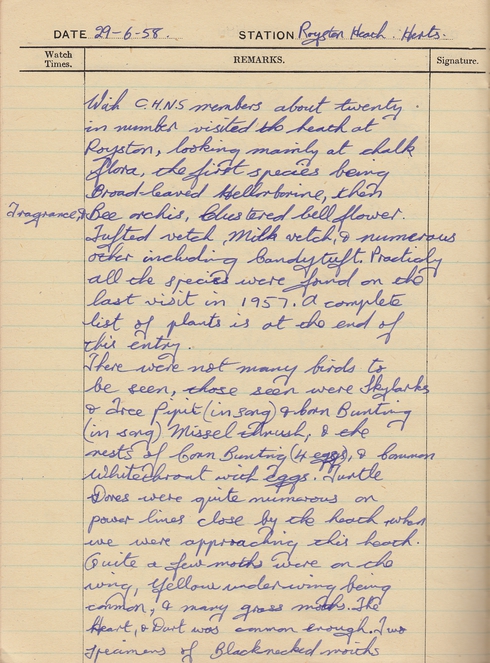 DATE 29-6-58. STATION Royston Heath. Herts.
Watch Times. REMARKS. Signature.
With C.H.N.S members about twenty
in number visited the heath at
Royston, looking mainly at chalk
flora, the first species being
Broad-leaved Hellorborine, then
Fragrance, & Bee orchis, Clustered bellflower.
Tufted vetch, Milk vetch, & numerous
other including Candytuft. Practicly
all the species were found on the
last visit in 1957. A complete
list of plants is at the end of
this entry.
There were not many birds to
be seen, those seen were Skylarks
& Tree Pipit (in song) & Corn Bunting
(in song) Missel thrush, & the
nests of Corn Bunting (4 eggs), & Common
Whitethroat with eggs. Turtle
Doves were quite numerous on
power lines close by the heath when
we were approaching this heath.
Quite a few moths were on the
wing, Yellow underwing being
common, & many grass moths. The
Heart, & Dart was common enough. Two
specimens of Blacknecked moths